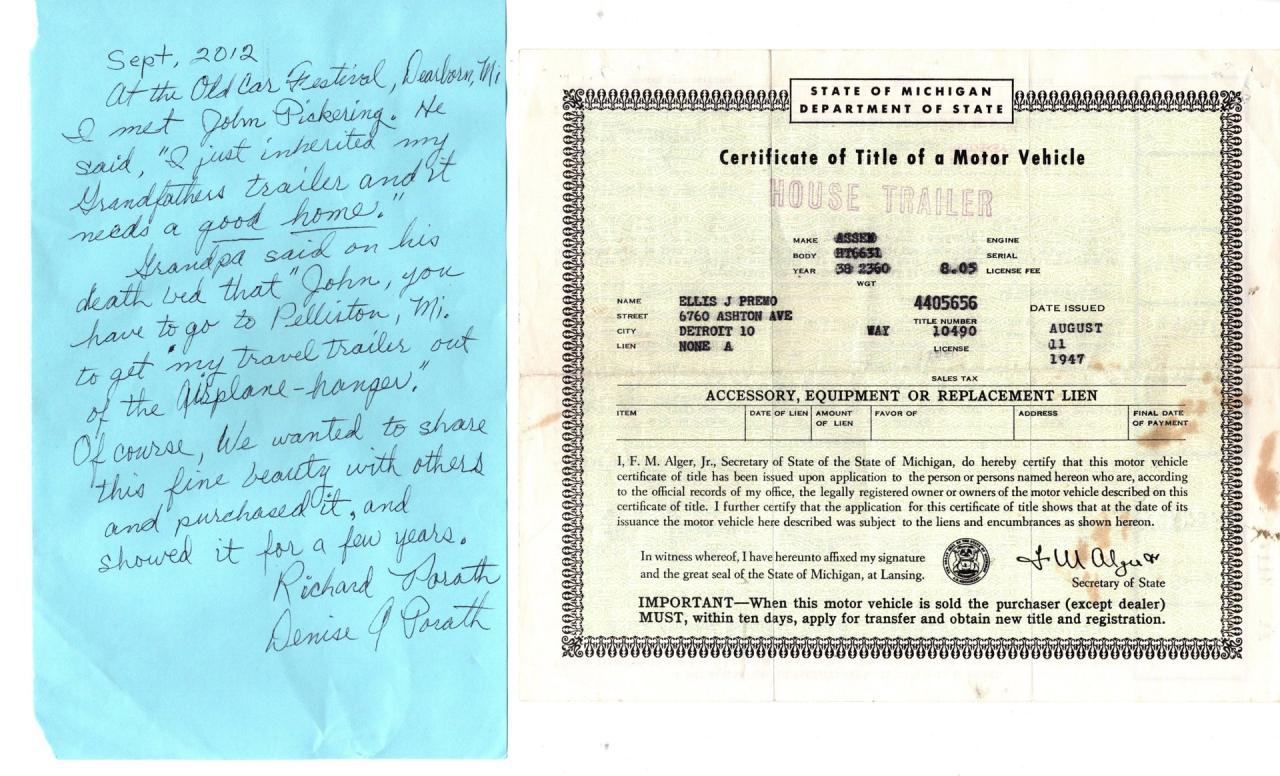 Sept, 2012
At the Old Car Festival, Dearborn, Mi
I met John Pickering. He
said, "I just inherited my
Grandfathers trailer and it
needs a good home."
Grandpa said on his
death bed that "John, you
have to go to Pelliston Mi.
to get my travel trailer out
of the Airplane-hanger."
Of course, We wanted to share
this fine beauty with others
and purchased it, and
showed it for a few years.
Richard Porath
Denise J Porath
STATE OF MICHIGAN
DEPARTMENT OF STATE
Certificate of Title of a Motor Vehicle
HOUSE TRAILER
MAKE ASSEM ENGINE
BODY HT6631 SERIAL
YEAR 38 2360 8.05 LICENSE FEE
WGT
NAME ELLIS J PREMO 4405656 DATE ISSUED
STREET 6760 ASHTON AVE TITLE NUMBER
CITY DETROIT 10 WAY 10490 AUGUST
LIEN NONE A LICENSE 11
1947
SALES TAX
ACCESSORY, EQUIPMENT OR REPLACEMENT LIEN
ITEM DATE OF LIEN AMOUNT OF LIEN FAVOR OF ADDRESS FINAL DATE OF PAYMENT
I, F. M. Alger, Jr., Secretary of State of the State of Michigan, do hereby certify that this motor vehicle
certificate of title has been issued upon application to the person or persons named hereon who are, according
to the official records of my office, the legally registered owner or owners of the motor vehicle described on this
certificate of title. I further certify that the application for this certificate of title shows that at the date of its
issuance the motor vehicle here described was subject to the liens and encumbrances as shown hereon.
In witness whereof, I have hereunto affixed my signature
and the great seal of the State of Michigan, at Lansing.
F M Alger Jr
Secretary of State
IMPORTANT—When this motor vehicle is sold the purchaser (except dealer)
MUST, within ten days, apply for transfer and obtain new title and registration.